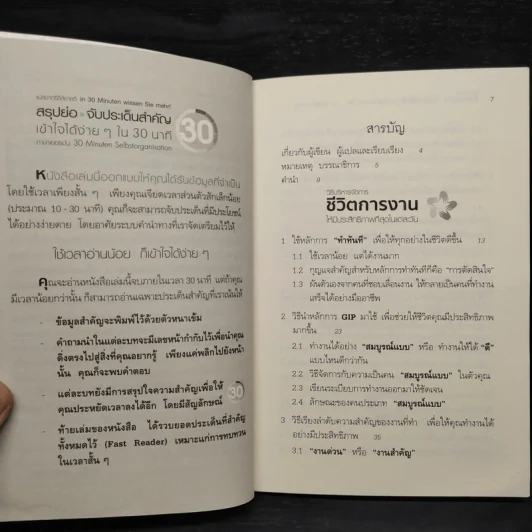 แปลจากซีรีส์เยอรมัน in 30 Minuten wissen Sie mehr!
สรุปย่อ - จับประเด็นสำคัญ
เข้าใจได้ง่าย ๆ ใน 30 นาที
ภาษาเยอรมัน 30 Minuten Selbstorganisation
30
หนังสือเล่มนี้ออกแบบให้คุณได้รับข้อมูลที่จำเป็น
โดยใช้เวลาเพียงสั้น ๆ เพียงคุณเจียดเวลาส่วนตัวสักเล็กน้อย
(ประมาณ 10 - 30 นาที) คุณก็จะสามารถจับประเด็นที่มีประโยชน์
ได้อย่างง่ายดาย โดยอาศัยระบบคำนำทางที่เราจัดเตรียมไว้ให้
ใช้เวลาอ่านน้อย ก็เข้าใจได้ง่าย ๆ
คุณจะอ่านหนังสือเล่มนี้จบภายในเวลา 30 นาที แต่ถ้าคุณ
มีเวลาน้อยกว่านั้น ก็สามารถอ่านเฉพาะประเด็นสำคัญที่เราเน้นให้
- ข้อมูลสำคัญจะพิมพ์ไว้ด้วยตัวหนาเข้ม
- คำถามนำในแต่ละบทจะมีเลขหน้ากำกับไว้เพื่อนำคุณ
ดิ่งตรงไปสู่สิ่งที่คุณอยากรู้ เพียงแค่พลิกไปยังหน้า
นั้น คุณก็จะพบคำตอบ
- แต่ละบทยังมีการสรุปใจความสำคัญเพื่อให้
คุณประหยัดเวลาลงได้อีก โดยมีสัญลักษณ์
30
- ท้ายเล่มของหนังสือ ได้รวบยอดประเด็นที่สำคัญ
ทั้งหมดไว้ (Fast Reader) เหมาะแก่การทบทวน
ในเวลาสั้น ๆ
7
สารบัญ
เกี่ยวกับผู้เขียน ผู้แปลและเรียบเรียง 4
หมายเหตุ บรรณาธิการ 5
คำนำ 9
วิธีบริหารจัดการ
ชีวิตการงาน
ให้มีประสิทธิภาพที่สุดในแต่ละวัน
1 ใช้หลักการ "ทำทันที" เพื่อให้ทุกอย่างในชีวิตดีขึ้น 13
1.1 ใช้เวลาน้อย แต่ได้งานมาก
1.2 กุญแจสำคัญสำหรับหลักการทำทันทีก็คือ "การตัดสินใจ"
1.3 ผันตัวเองจากคนที่ชอบเลื่อนงาน ให้กลายเป็นคนที่ทำงาน
เสร็จได้อย่างมืออาชีพ
2 วิธีนำหลักการ GIP มาใช้ เพื่อช่วยให้ชีวิตคุณมีประสิทธิภาพ
มากขึ้น 23
2.1 ทำงานได้อย่าง "สมบูรณ์แบบ" หรือ ทำงานให้ได้ "ดี"
แบบไหนดีกว่ากัน
2.2 วิธีจัดการกับความเป็นคน "สมบูรณ์แบบ" ในตัวคุณ
2.3 เขียนระเบียบการทำงานออกมาให้ชัดเจน
2.4 ลักษณะของคนประเภท "สมบูรณ์แบบ"
3 วิธีเรียงลำดับความสำคัญของงานที่ทำ เพื่อให้คุณทำงานได้
อย่างมีประสิทธิภาพ 35
3.1 "งานด่วน" หรือ "งานสำคัญ"